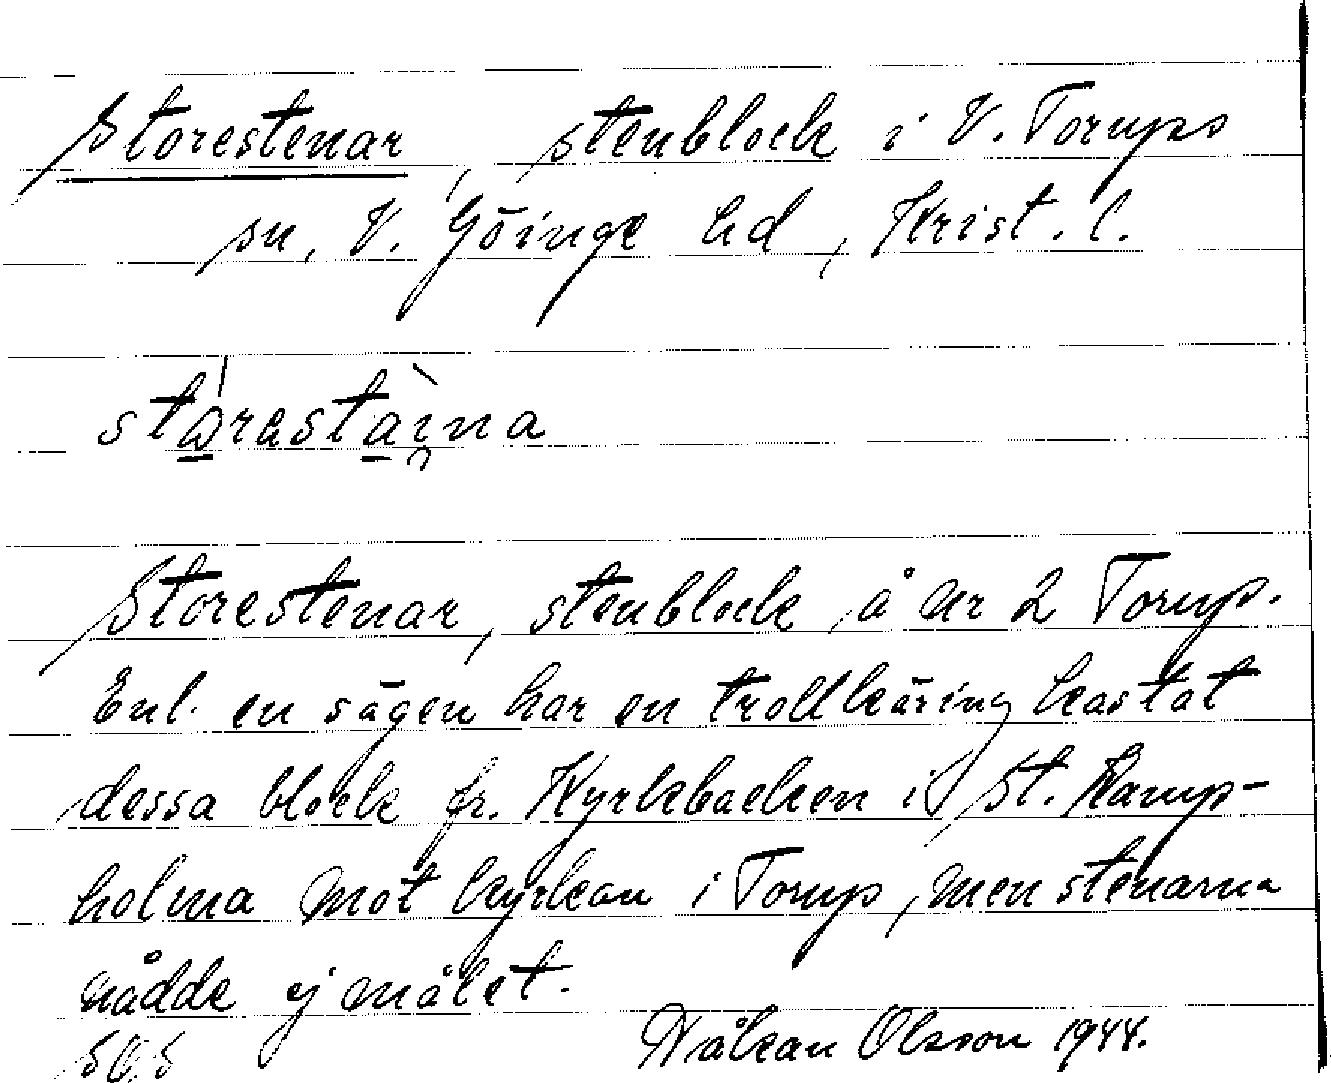 Storestenar, stenblock i V. Torups
sn, V. Göinge hd, Krist. l.
Storestenar, stenblock, å nr 2 Torup.
Enl. en sägen har en trollkäring kastat
dessa block fr. Kyrkbacken i St. Karup-
holma mot kyrkan i Torup, men stenarna
nådde ej målet.
Håkan Olsson 1944.